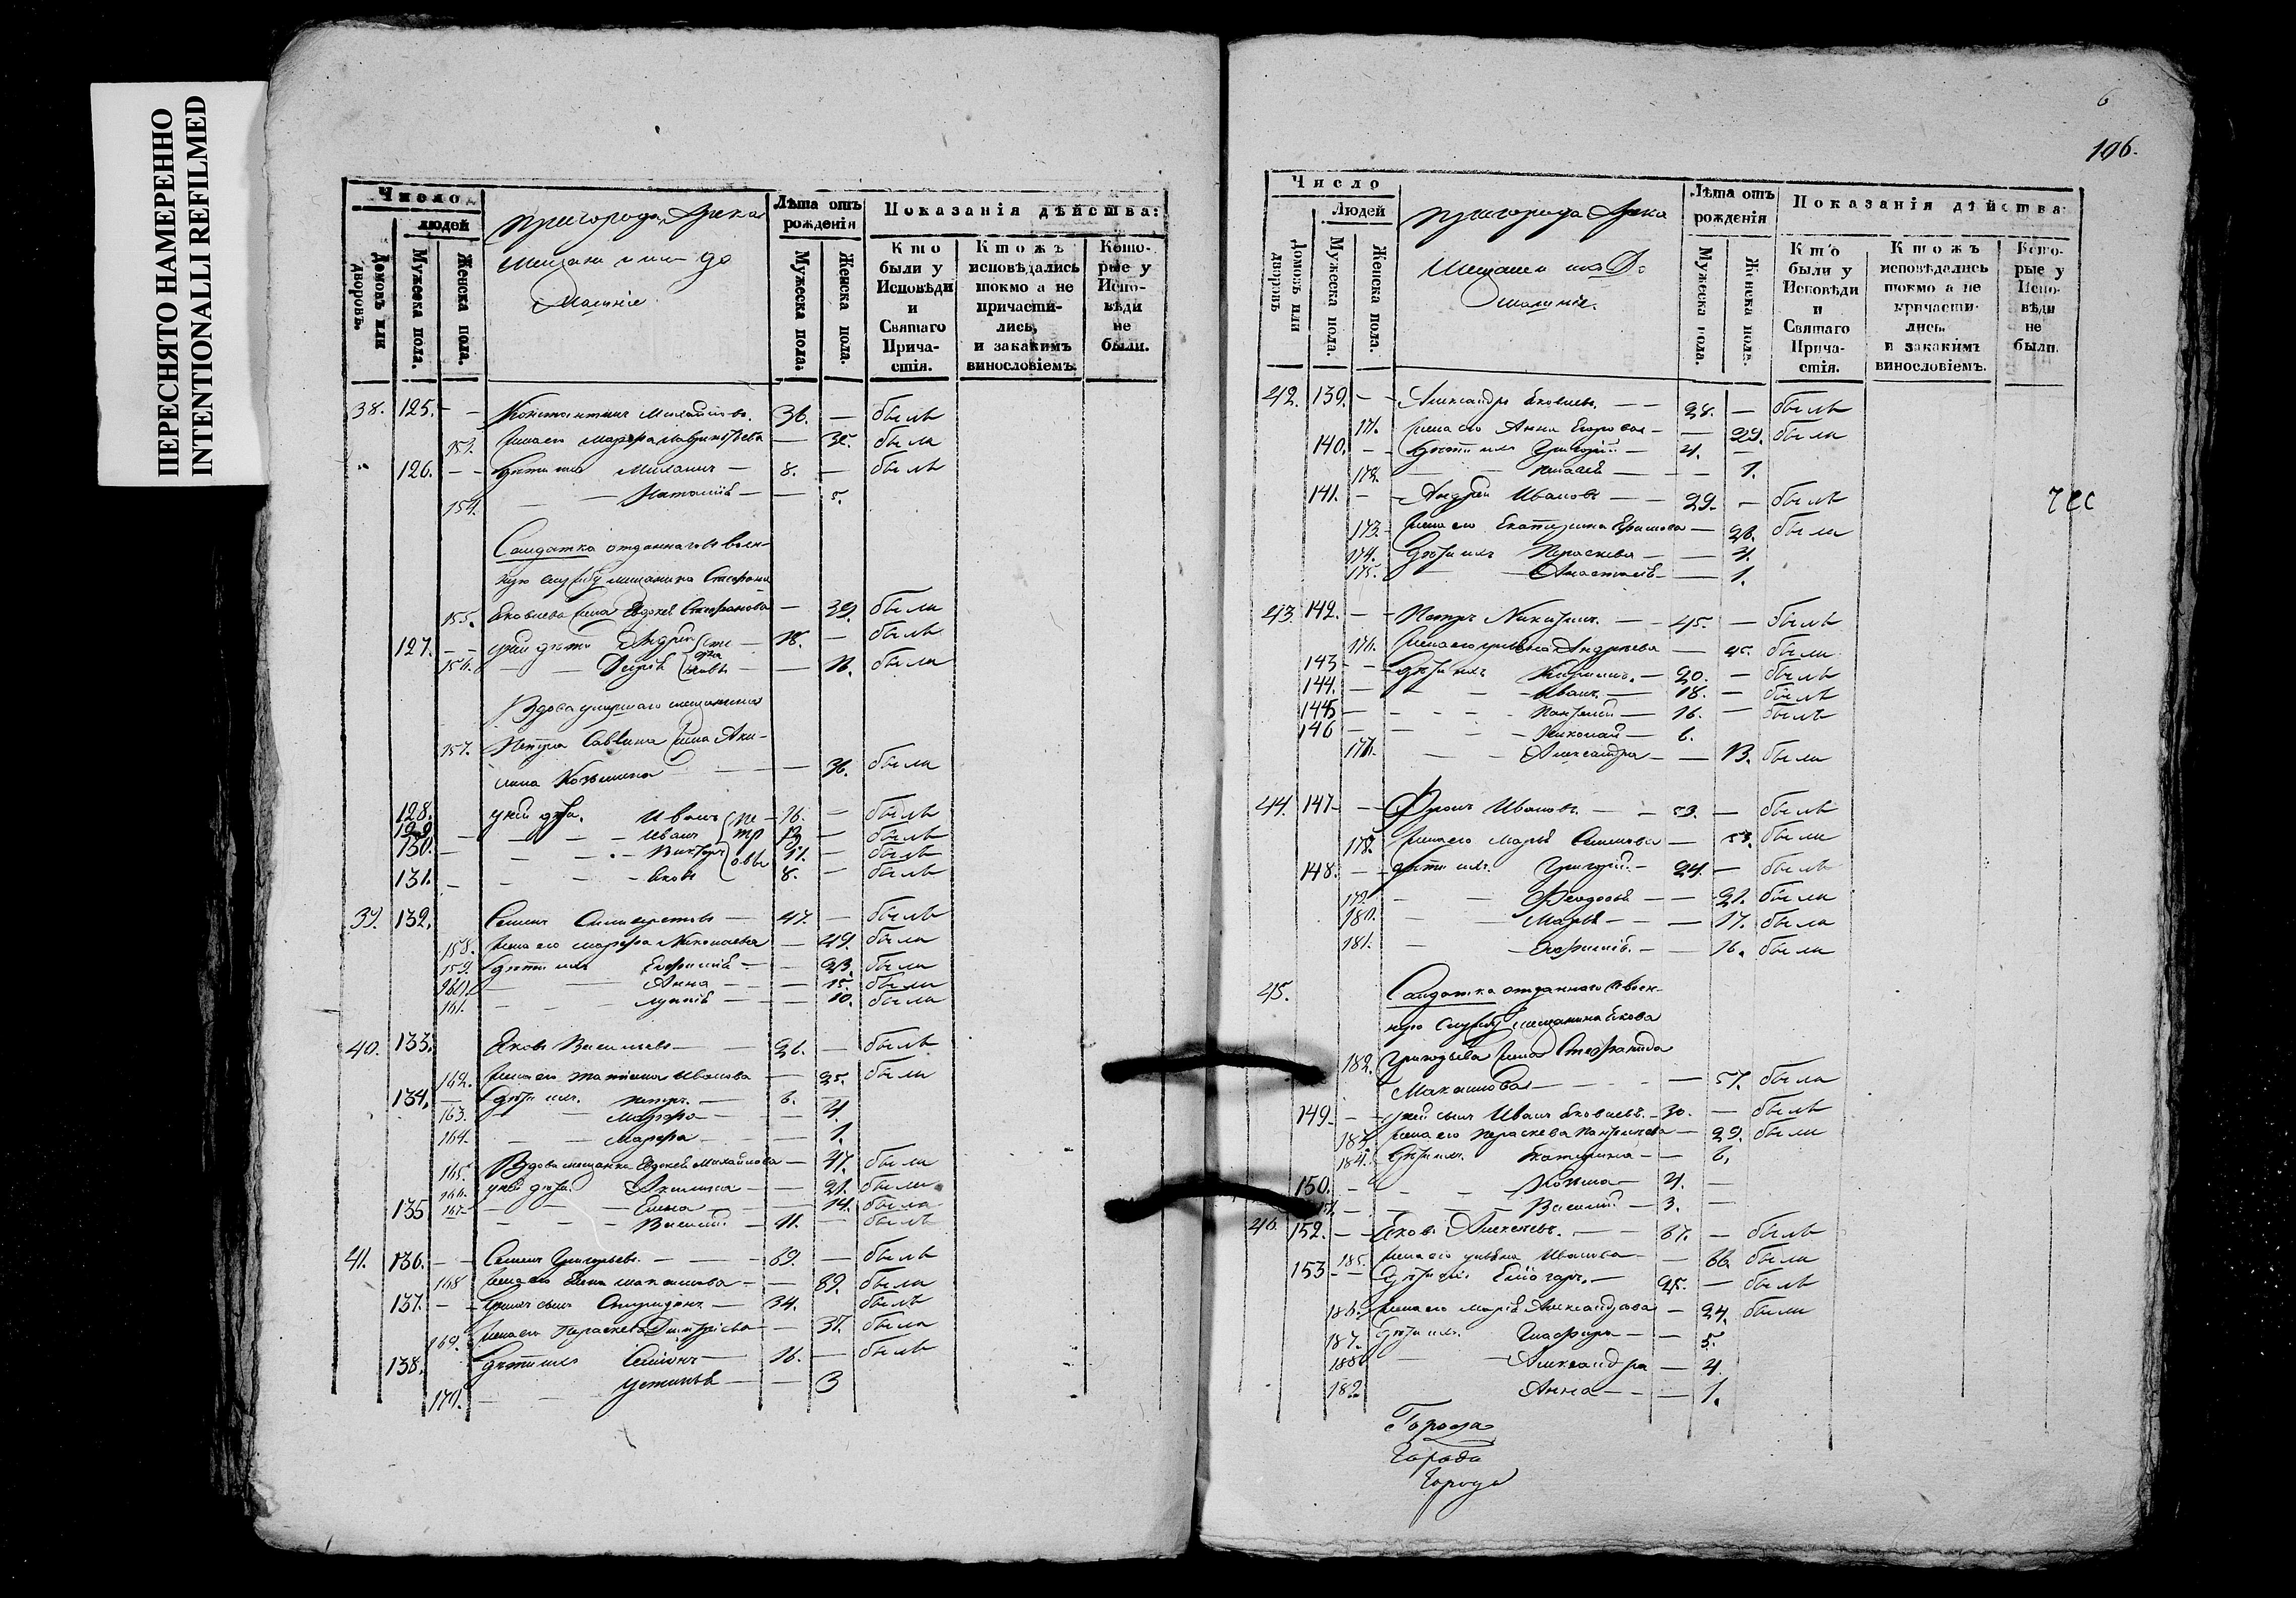 ПЕРЕСНЯТО НАМЕРЕННО
INTENTIONALLI REFILMED
Число
людей
Домовъ или дворовъ.
Мужеска пола.
Женска пола.
пригорода Арска
Мещане и их до
машніе
Лѣта отъ рожденія
Мужеска пола.
Женска пола.
Показанія дѣйства:
Кто были у Исповѣди и Святаго Прича-стія.
Ктожъ исповѣдались токмо а не причасти-лись, и закакимъ винословіемъ.
Кото-рые у Испо-вѣди не были.
38. 125. Константинъ 36. — былъ
153. жена его Марфа — 35. была
126. дѣти ихъ 8. — былъ
154. Наталія — 5.
Салдатка отданнаго въ воен-
ную службу мещанина Стефана
155. Яковлева жена Евдокія Стефанова — 39. была
127. у ней дѣти Андрей 18. — былъ
156. — 16. была
Вдова умершаго мещанина
157. Петра Саввина жена Аку-
лина Козмина — 36. была
128. у ней дѣти Иванъ 16. — былъ
129. Иванъ — былъ
130. Викторъ 11. — былъ
131. Яковъ 8. — былъ
39. 132. Семенъ 47. — былъ
158. жена его Марфа Николаева — 49. была
159. дѣти ихъ Евфимія — 23. была
160. Анна — 15. была
161. — 10. была
40. 133. Яковъ Васильевъ — 26. — былъ
162. жена его Татіана Иванова — 25. была
134. дѣти ихъ Петръ — 6.
163. Марфа — 4.
164. Марфа — 1.
165. Вдова мещанка Евдокія Михайлова — 47. была
166. у ней дѣти Акилина — 21. была
167. Елена — 14. была
135 Василій — 11. — былъ
41. 136. Семенъ Григорьевъ. — 69. — былъ
168 жена его Елена Максимова — была
137. у нихъ сынъ Спиридонъ — 34. былъ
169. жена его Параскева Дмитріева — 37. была
138. дѣти ихъ Семіонъ — 16. — былъ
170. Устинья — 3
6
106.
Число
Людей
Домовъ или дворовъ
Мужеска пола.
Женска пола.
пригорода Арска
Мещане и их До
машніе.
Лѣта отъ рожденія
Мужеска пола.
Женска пола.
Показанія дѣйства
Кто были у Исповѣди и Святаго Прича-стія.
Ктожъ исповѣдались токмо а не причасти-лись. и закакимъ винословіемъ.
Кото-рые у Испо-вѣди не были.
42. 139. Александръ Яковлевъ. — 28. — былъ
171. жена его Анна Егорова — 29. была
140. дѣти ихъ Григорій — 4. —
172. — 1.
141. Андрей Ивановъ — 29. — былъ
173. жена его Екатерина Ефимова — 28. была
174. дѣти ихъ Параскева — 4.
175. Анастасія — 1.
43. 142. Петръ Никитинъ. — 45. — былъ
176. жена его Андреева — 45. была
143 дѣти ихъ — 20. — былъ
144. Иванъ — 18. — былъ
145 — 16. — былъ
146 Николай — 6.
177. Александра — 13. была
44. 147 Ивановъ — 53. — былъ
178. жена его Марья Семенова — 53. была
148. дѣти ихъ. Григорій. — 24. — былъ
179 Феодосья — 21. была
180. Марья — 17. была
181. Евфимія. — 16. была
45. Салдатка отданнаго въ воен-
ную Службу мещанина Якова
182. Григорьева жена Стефанида
Максимова — 57. была
149 у ней сынъ Иванъ Яковлевъ. — 30. — былъ
183. жена его Параскева — 29. была
184. дѣти ихъ. Екатерина — 6,
150. Козма — 4. —
Василій — 3. —
46. 152. Яковъ Алексеевъ. — 67. — былъ
185. жена его Ульяна Иванова — 66. была
153 — 25. — былъ
186. жена его Марія Александрова — 24. была
187. дѣти ихъ. Глафира — 5.
188 Александра — 4.
182 Анна — 1.
Города
Города
Города